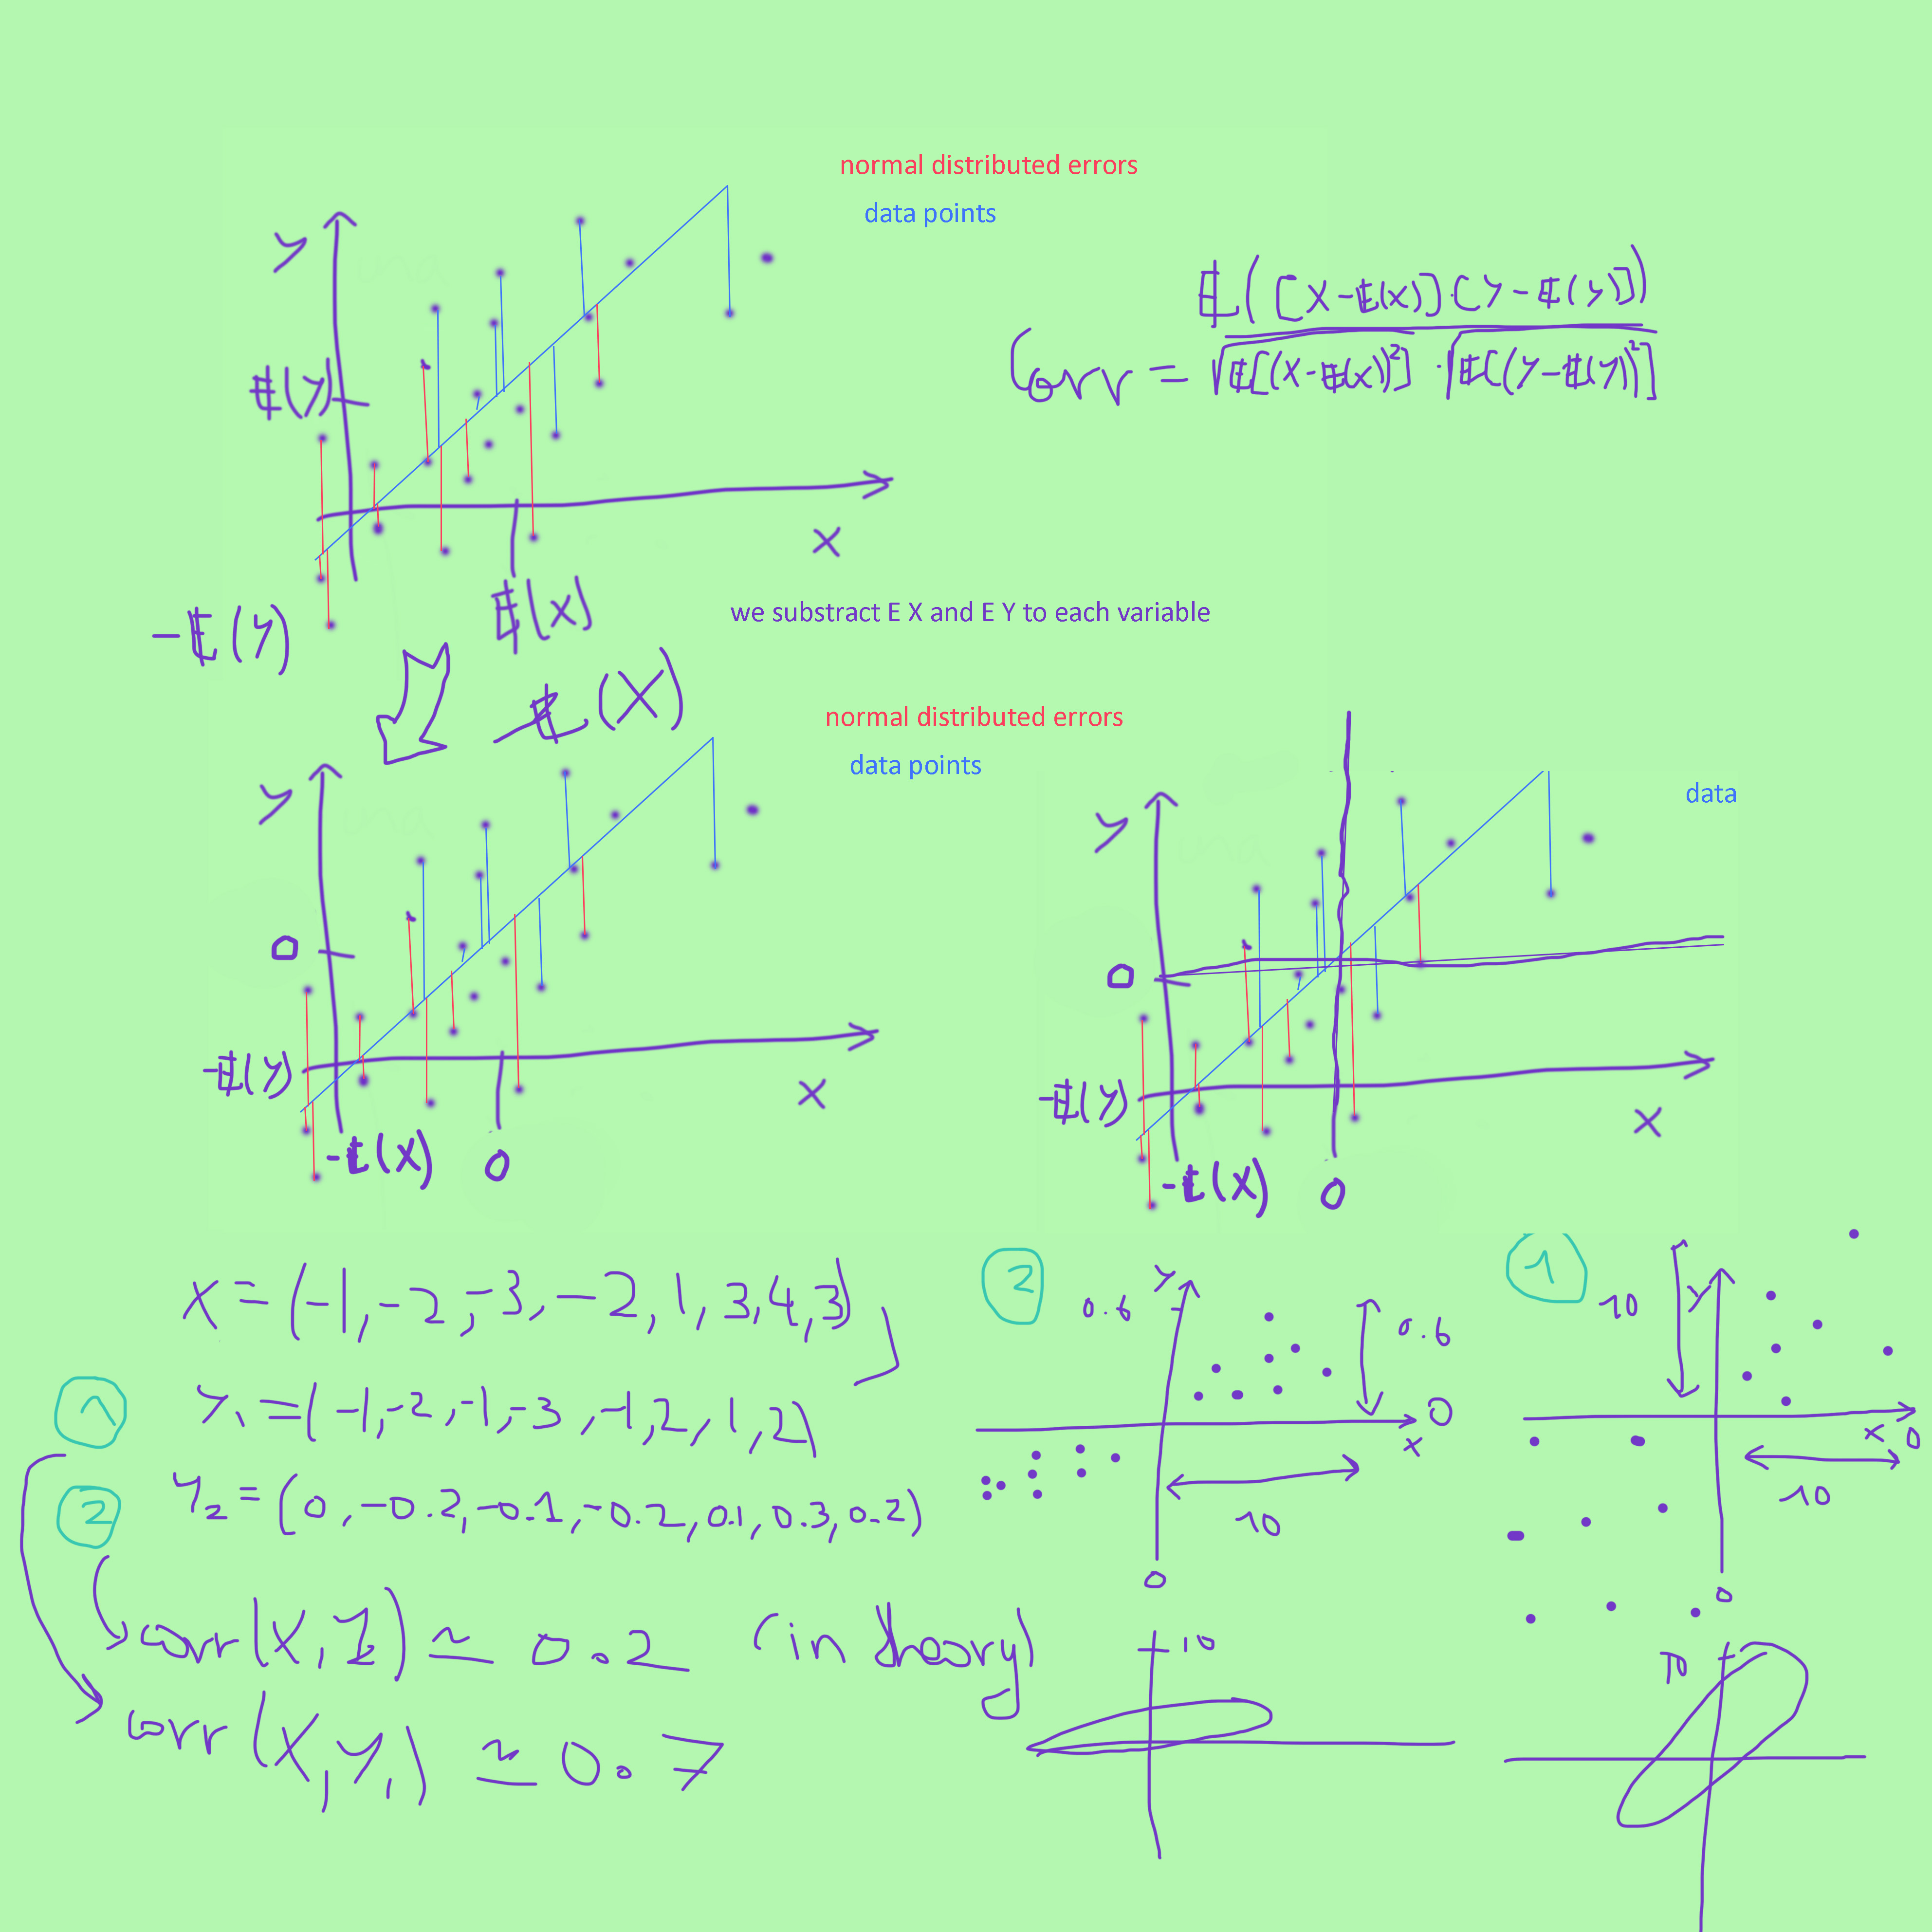 normal distributed errors
data points
y
E(y)
x
E(x)
Corr = E([X-E(x)]·[y-E(y)]) / √E[(X-E(x))²] · √E[(y-E(y))²]
-E(y)
we substract E X and E Y to each variable
-E(X)
normal distributed errors
data points
y
0
-E(y)
x
-E(X) 0
data
y
0
-E(y)
x
-E(X) 0
X = (-1, -2, -3, -2, 1, 3, 4, 3)
1 Y₁ = (-1, -2, -1, -3, -1, 2, 1, 2)
2 Y₂ = (0, -0.2, -0.1, -0.2, 0.1, 0.3, 0.2)
corr(X, Y₂) ≃ 0.2 (in theory)
corr(X, Y₁) ≃ 0.7
2
y
0.6
0.6
0
x
10
0
1
10
y
x 0
10
0
10
10